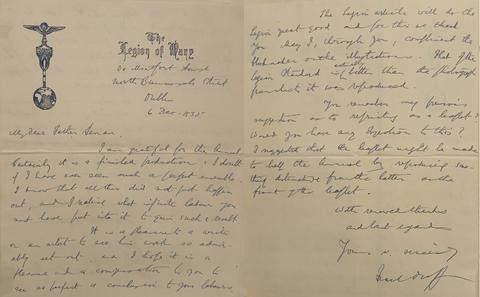 The
Legion of Mary
De Montfort House
North Brunswick Street
Dublin
6 Dec. 1938
My dear Father
I am grateful for the Annual.
Certainly it is a finished production. I doubt
if I have ever seen such a perfect ensemble.
I know that all this did not just happen
out, and I realise what infinite labour you
must have put into it to gain such a result.
It is a pleasure to a writer
or an artist to see his work so admir-
ably set out. and I hope it is a
pleasure and a compensation to you to
see so perfect a conclusion to your labours.
The Legion article will do the
Legion great good and for this we thank
you. May I, through you, compliment the
on the illustrations. That of the
Legion Standard is actually better than the photograph
from which it was reproduced.
You remember my previous
suggestion as to reprinting as a leaflet?
Would you have any objection to this?
I suggested that the leaflet might be made
to the Annual by reproducing some-
thing distinctive from the latter on the
front of the leaflet.
With renewed thanks
and best regards
Yours v. sincerely
Frank Duff